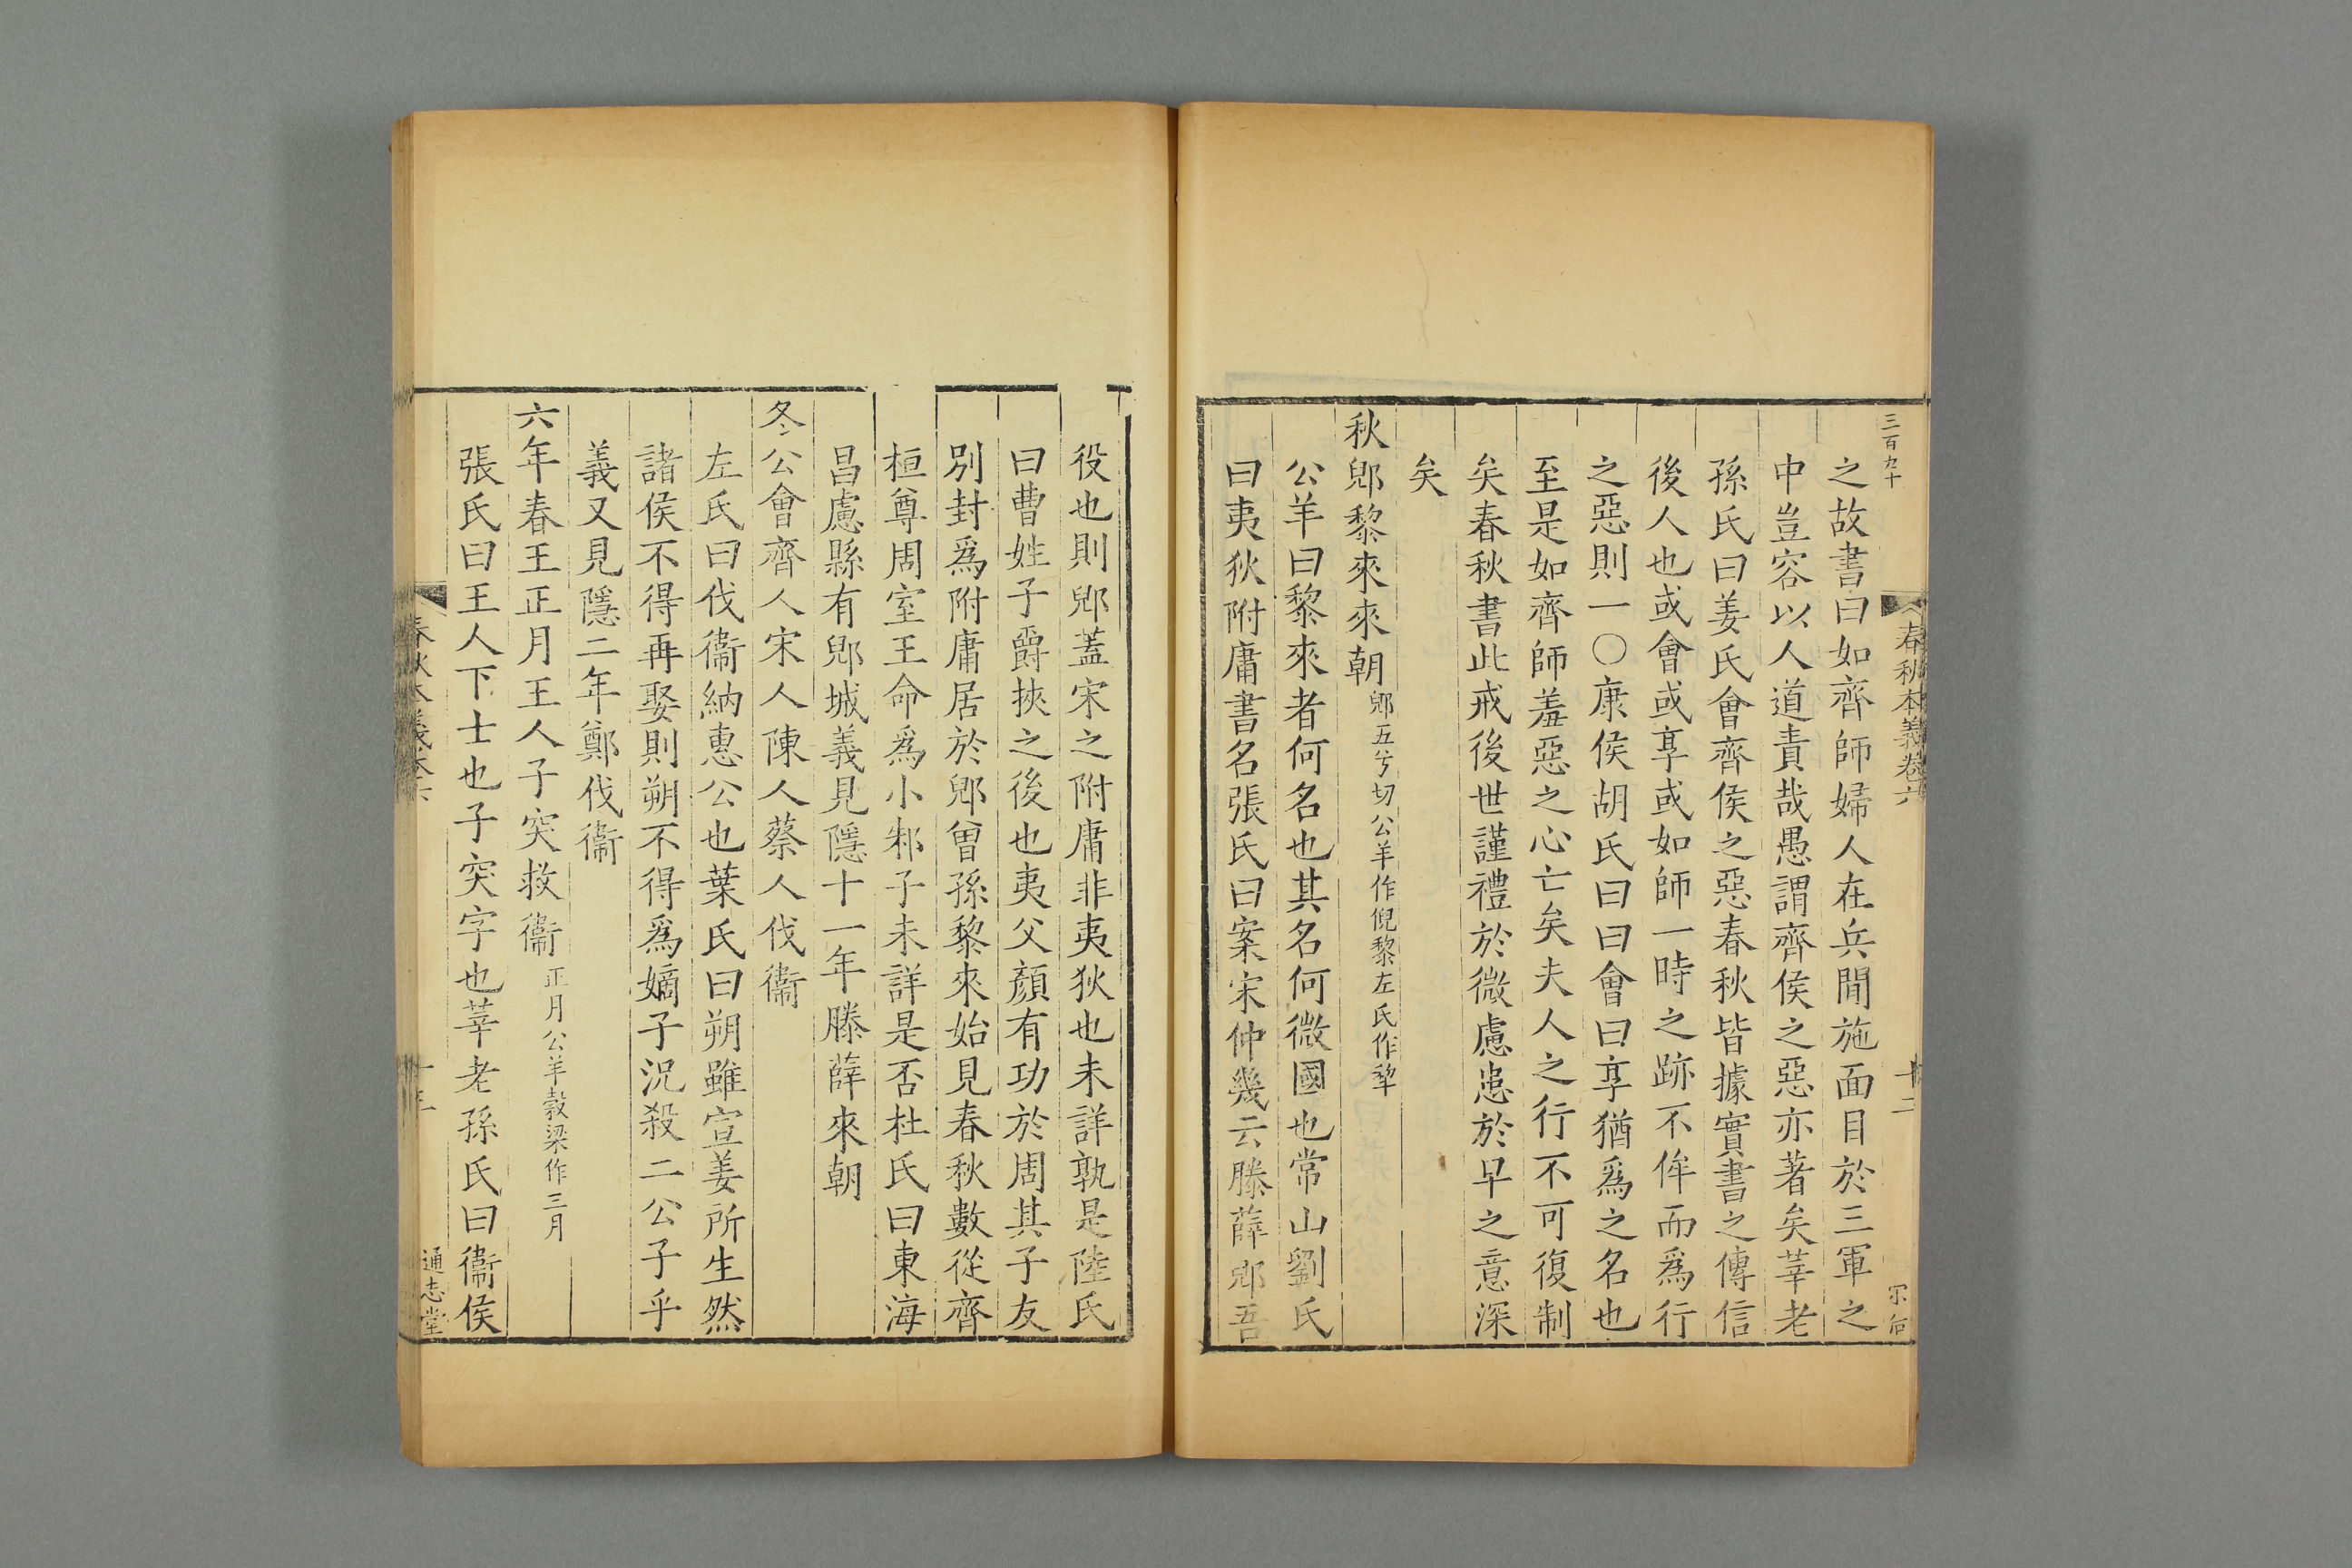 三百九十
春秋本義卷六
十二
之故書曰如齊師婦人在兵閒施面目於三軍之
中豈容以人道責哉愚謂齊侯之惡亦著矣莘老
孫氏曰姜氏會齊侯之惡春秋皆據實書之傳信
後人也或會或享或如師一時之跡不侔而爲行
之惡則一〇康侯胡氏曰曰會曰享猶爲之名也
至是如齊師羞惡之心亡矣夫人之行不可復制
矣春秋書此戒後世謹禮於微慮患於早之意深
矣
秋郳黎來來朝郳五兮切公羊作倪黎左氏作犂
公羊曰黎來者何名也其名何微國也常山劉氏
曰夷狄附庸書名張氏曰案宋仲幾云滕薛郳吾
役也則郳蓋宋之附庸非夷狄也未詳孰是陸氏
曰曹姓子爵挾之後也夷父顏有功於周其子友
別封爲附庸居於郳曾孫黎來始見春秋數從齊
桓尊周室王命爲小邾子未詳是否杜氏曰東海
昌慮縣有郳城義見隱十一年滕薛來朝
冬公會齊人宋人陳人蔡人伐衞
左氏曰伐衞納惠公也葉氏曰朔雖宣姜所生然
諸侯不得再娶則朔不得爲嫡子況殺二公子乎
義又見隱二年鄭伐衞
六年春王正月王人子突救衞正月公羊穀梁作三月
張氏曰王人下士也子突字也莘老孫氏曰衞侯
通志堂